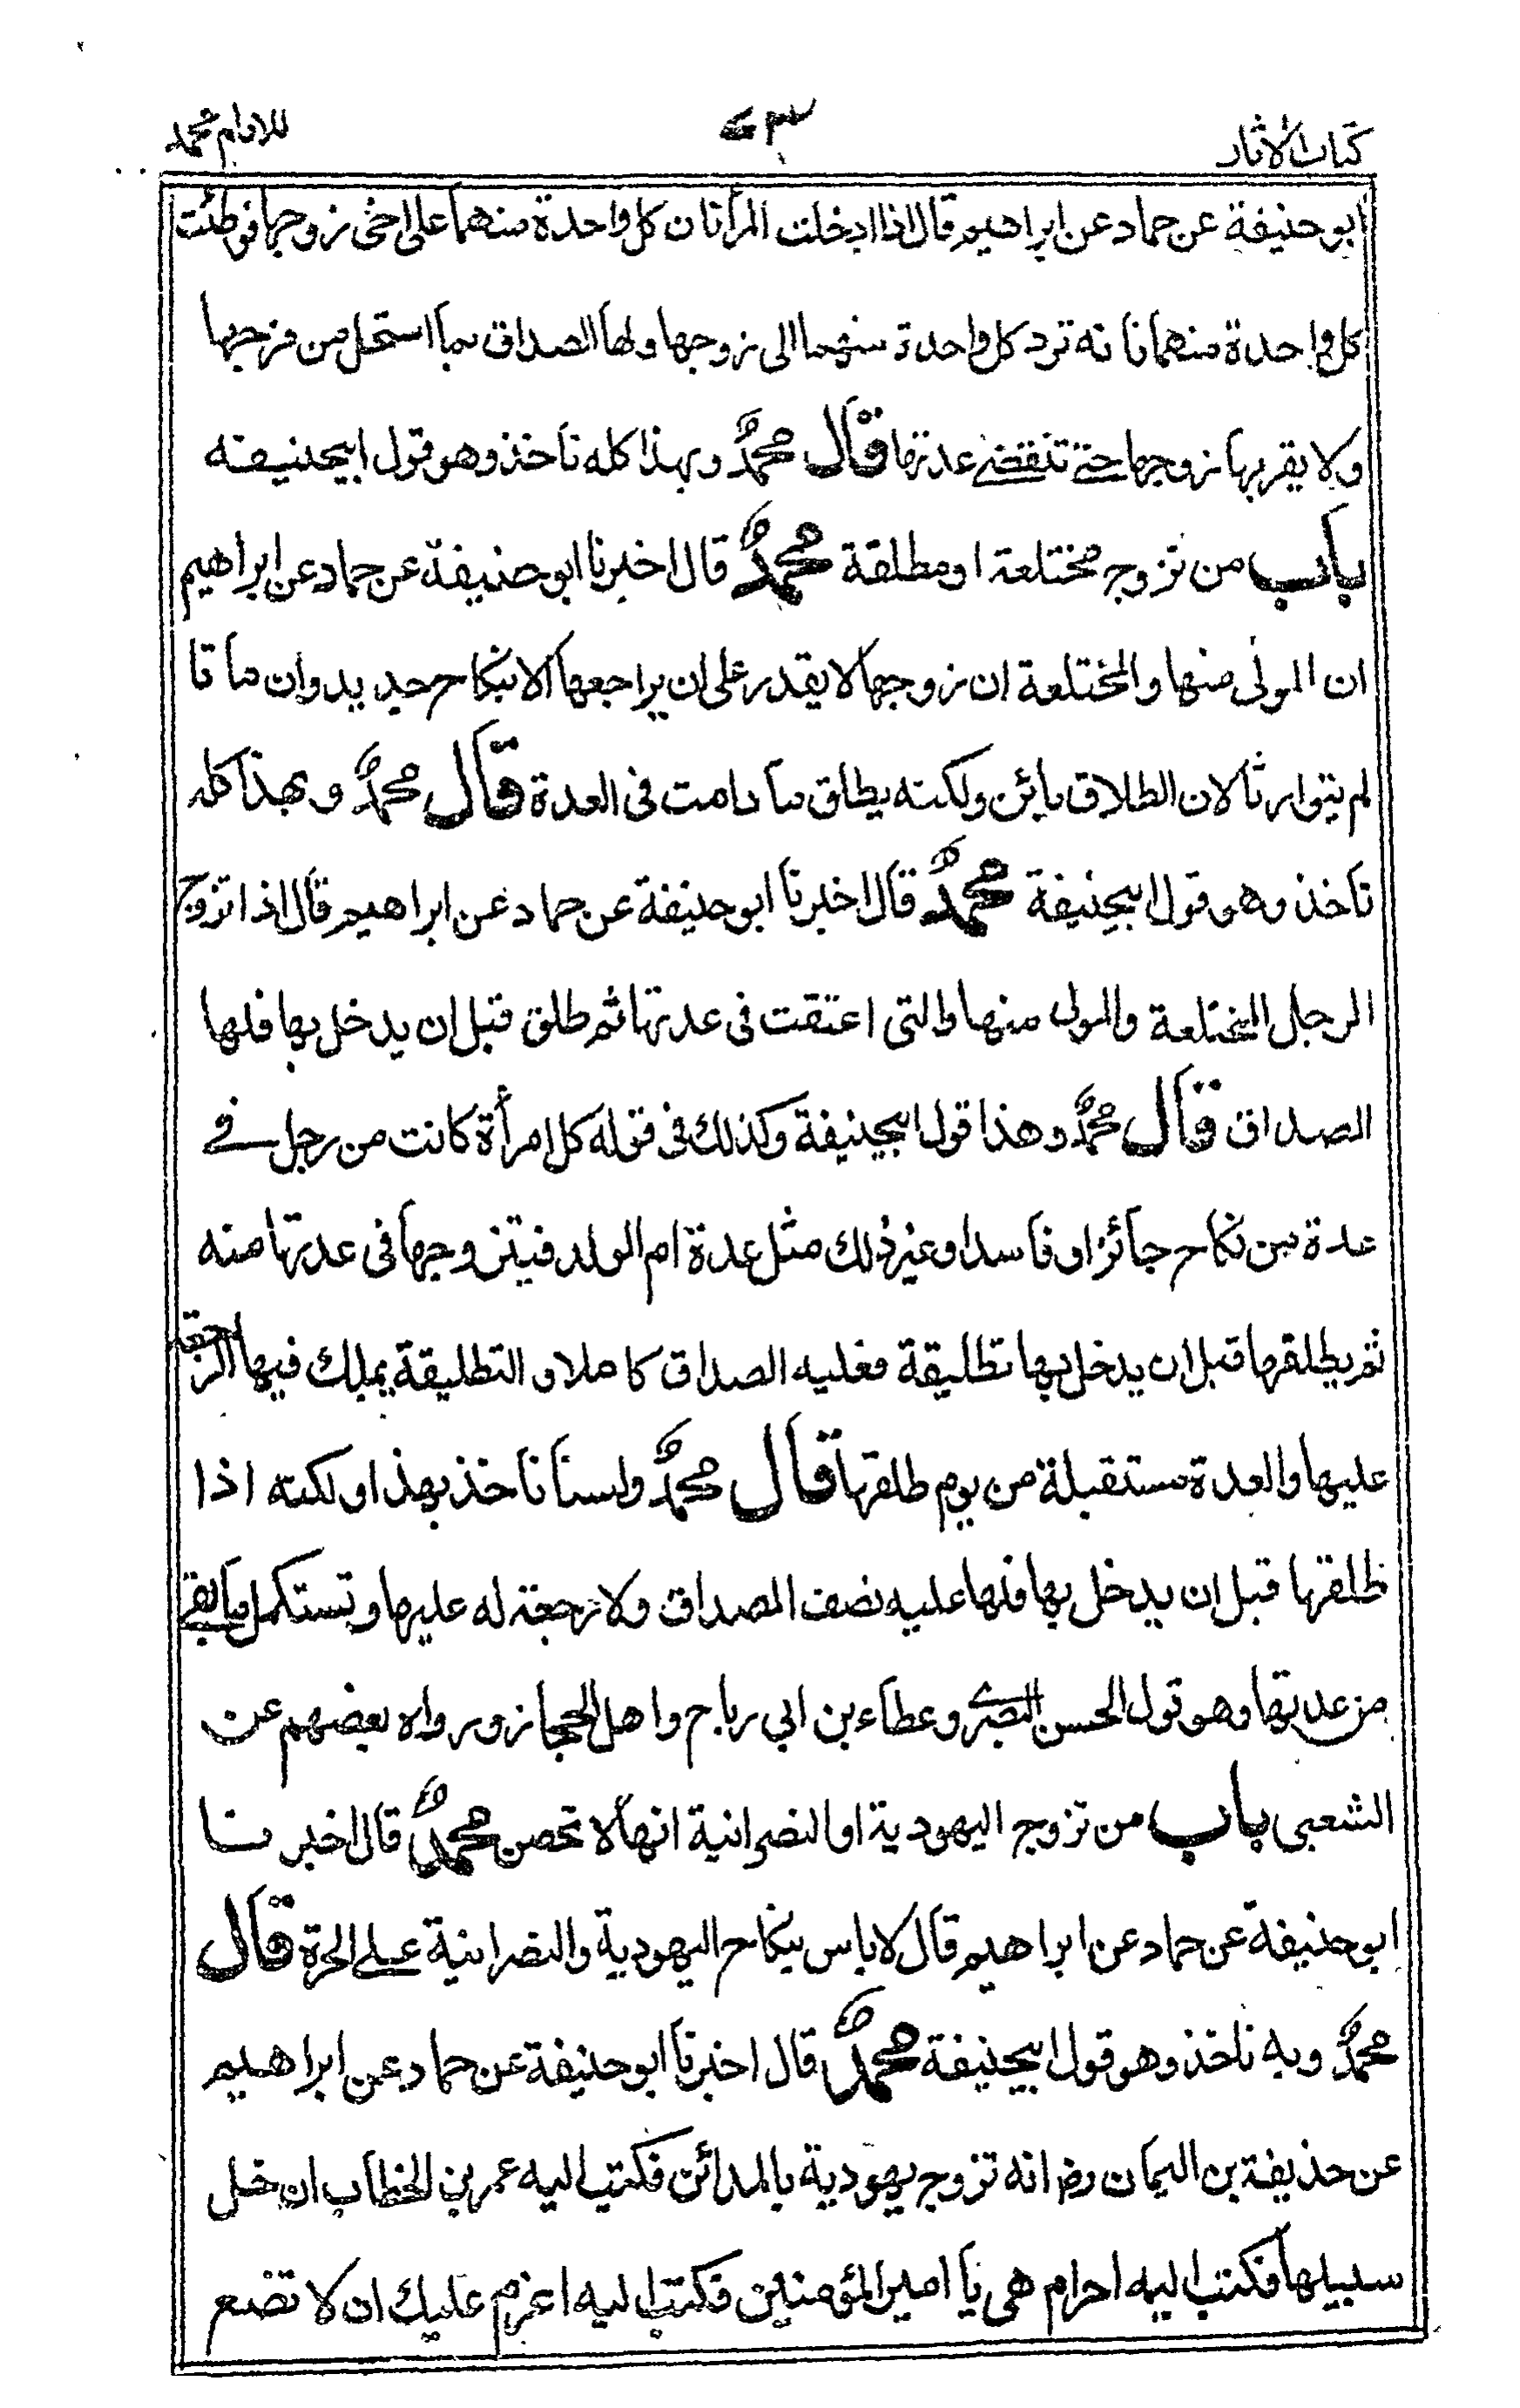 كتاب الاثار ٧٣ للامام محمد
ابو حنيفة عن حماد عن ابراهيم قال اذا ادخلت المرأتان كل واحدة منهما على اخى زوجها فوطئت
كل واحدة منهما فانه ترد كل واحدة منهما الى زوجها ولها الصداق بما استحل من فرجها
ولا يقربها زوجها حتى تنقضے عدتها قال محمدؒ وبهذا كله نأخذ وهو قول ابيحنيفه
باب من تزوج مختلعة او مطلقة محمدؒ قال اخبرنا ابو حنيفة عن حماد عن ابراهيم
ان المولى منها والمختلعة ان زوجها لا يقدر على ان يراجعها الا بنكاح جديد وان ماتا
لم يتوارثا لان الطلاق بائن ولكنه يطلق ما دامت فى العدة قال محمدؒ وبهذا كله
نأخذ وهو قول ابيحنيفة محمدؒ قال اخبرنا ابو حنيفة عن حماد عن ابراهيم قال اذا تزوج
الرجل المختلعة والمولى منها والتى اعتقت فى عدتها ثم طلق قبل ان يدخل بها فلها
الصداق قال محمدؒ وهذا قول ابيحنيفة وكذلك فى قوله كل امرأة كانت من رجل فے
عدة من نكاح جائز او فاسد او غير ذلك مثل عدة ام الولد فيتزوجها فى عدتها منه
ثم يطلقها قبل ان يدخل بها تطليقة فعليه الصداق كاملا و التطليقة يملك فيها الرجعة
عليها والعدة مستقبلة من يوم طلقها قال محمدؒ ولسنا نأخذ بهذا ولكنه اذا
طلقها قبل ان يدخل بها فلها عليه نصف الصداق ولا رجعة له عليها وتستكمل ما بقے
من عدتها وهو قول الحسن البصرى وعطاء بن ابي رباح واهل الحجاز ورواه بعضهم عن
الشعبى باب من تزوج اليهودية او النصرانية انها لا تحصن محمدؒ قال اخبرنا
ابو حنيفة عن حماد عن ابراهيم قال لا باس بنكاح اليهودية والنصرانية علے الحرة قال
محمدؒ وبه نأخذ وهو قول ابيحنيفة محمدؒ قال اخبرنا ابو حنيفة عن حماد عن ابراهيم
عن حذيفة بن اليمان رض انه تزوج يهودية بالمدائن فكتب اليه عمر بن الخطاب ان خل
سبيلها فكتب اليه احرام هى يا امير المؤمنين فكتب اليه اعزم عليك ان لا تضع